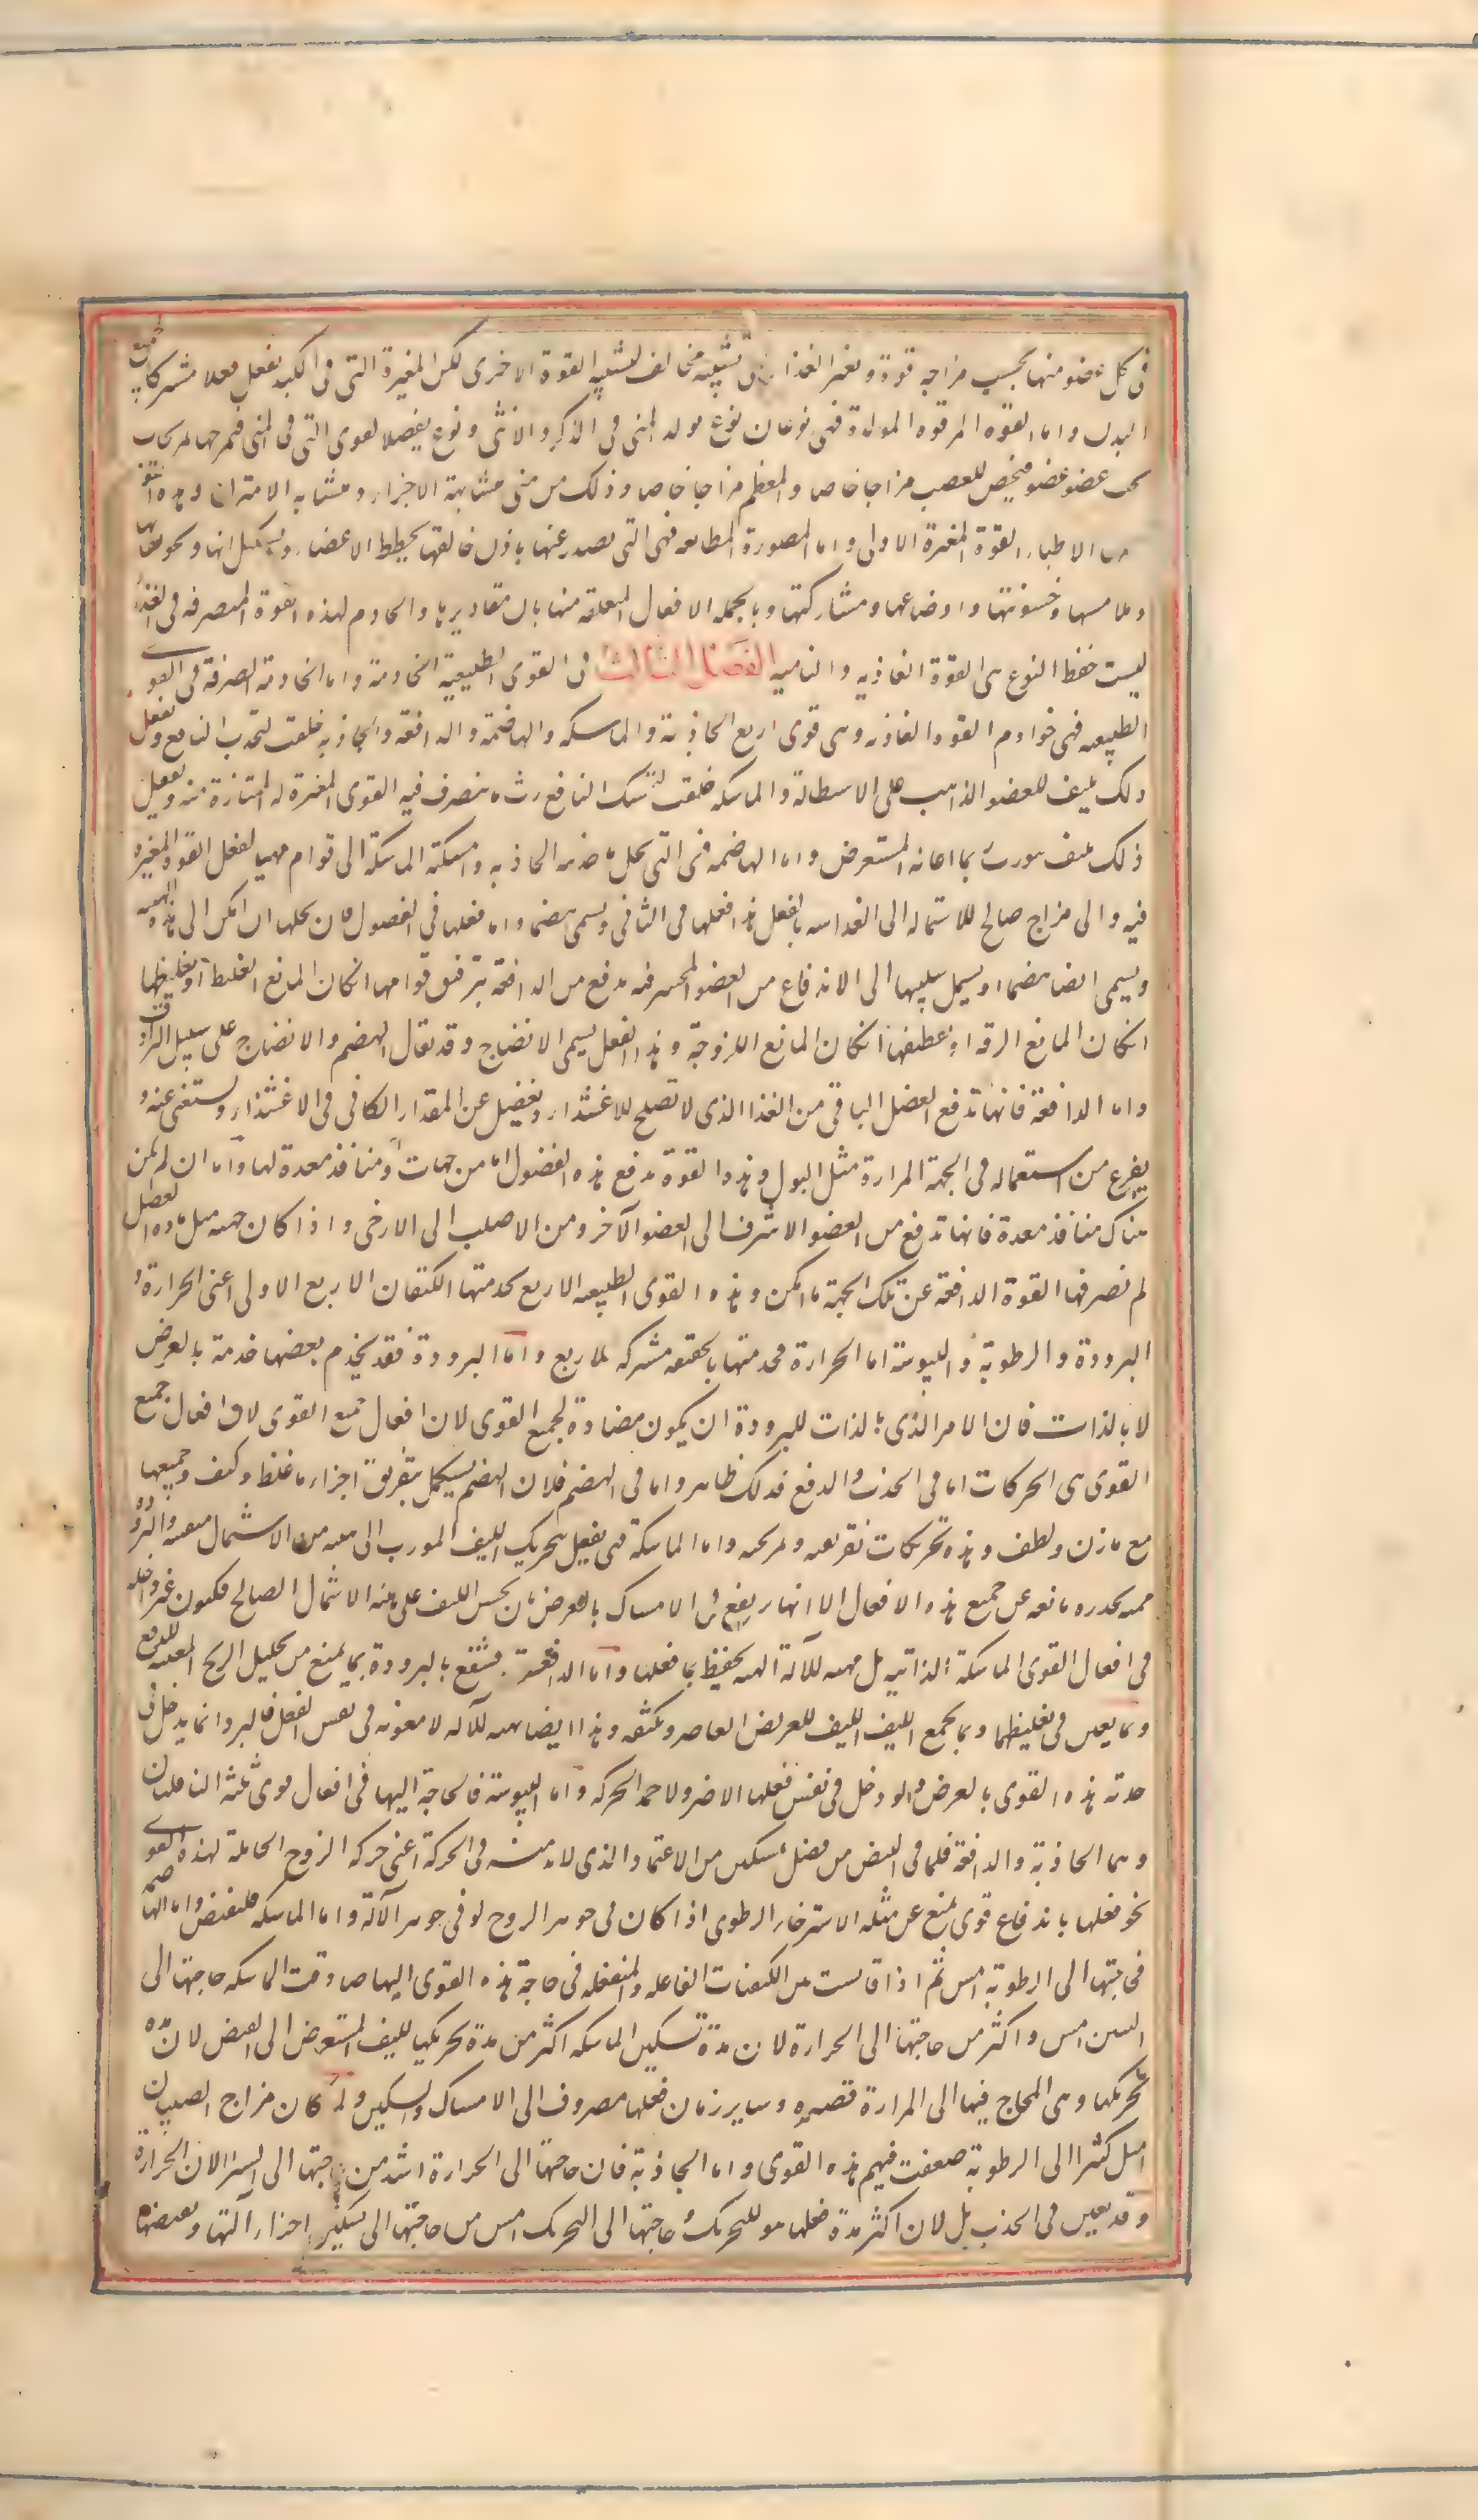 فى كل عضو منها بحسب مزاجه قوة و تغير الغذا تشبيه مخالف لتشبيه القوة الاخرى لكن المغيرة التى فى الكبد تفعل فعلا مشتركا بجميع
البدن و اما القوه المولدة فهى نوعان نوع يولد المنى فى الذكر و الانثى و نوع يفصل القوى التى فى المنى فيمزجها تمزيجات
بحسب عضو عضو فيخص للعصب مزاجا خاصا و للعظم مزاجا خاصا و ذلك من منى متشابهة الاجزاء و متشابه الامتزاج و هذه القوة
الاطباء القوة المغيرة الاولى و اما المصورة الطابعه فهى التى يصدر عنها باذن خالقها تخطيط الاعضاء و تشكيلاتها و تجويفاتها
و ملاستها و خشونتها و اوضاعها و مشاركتها و بالجمله الافعال المتعلقه بنهايات مقاديرها و الخادم لهذه القوة المتصرفه فى الغذاء
لسبب حفظ النوع هى القوة الغاذيه و الناميه الفصل الثالث فى القوى الطبيعية الخادمة و اما الخادمة الصرفة فى القوى
الطبيعيه فهى خوادم القوة الغاذيه و هى قوى اربع الجاذبة و الماسكه و الهاضمة و الدافعه و الجاذبه خلقت لتجذب النافع و تفعل
ذلك بليف العضو الذاهب على الاستطالة و الماسكه خلقت لتمسك النافع ريث ما يتصرف فيه القوى المغيرة له الممتازة منه و يفعل
ذلك بليف مورب بما اعانه المستعرض و اما الهاضمه فهى التى تحيل ما جذبته الجاذبه و امسكته الماسكة الى قوام مهيا لفعل القوة المغيره
فيه و الى مزاج صالح للاستحاله الى الغذائيه بالفعل هذا فعلها فى النافع و يسمى هضما و اما فعلها فى الفضول فان يحيلها ان امكن الى هذه الهيئة
و يسمى ايضا هضما او يسهل سبيلها الى الاندفاع من العضو المحتبس فيه بدفع من الدافعة بترقيق قوامها ان كان المانع الغلظ او تغليظها
ان كان المانع الرقه او تقطيعها ان كان المانع اللزوجة و هذا الفعل يسمى الانضاج و قد يقال الهضم و الانضاج على سبيل الترادف
و اما الدافعة فانها تدفع الفضل الباقى من الغذا الذى لا تصلح للاغتذاء و يفضل عن المقدار الكافى فى الاغتذاء و يستغنى عنه و
يفرغ من استعماله فى الجهة المرادة مثل البول و هذه القوة تدفع هذه الفضول اما من جهات و منافذ معدة لها و اما ان لم يكن
هناك منافذ معدة فانها تدفع من العضو الاشرف الى العضو الآخر و من الاصلب الى الارخى و اذا كان جهة ميل مادة الفضل
لم تصرفها القوة الدافعة عن تلك الجهة ما امكن و هذه القوى الطبيعيه الاربع تخدمها الكيفيات الاربع الاولى اعنى الحرارة و
البرودة و الرطوبة و اليبوسة اما الحرارة فخدمتها بالحقيقه مشتركه للاربع و اما البرودة فقد يخدم بعضها خدمة بالعرض
لا بالذات فان الامر الذى بالذات للبرودة ان يكون مضادة لجميع القوى لان افعال جميع القوى لان افعال جميع
القوى هى الحركات اما فى الجذب و الدفع فذلك ظاهر و اما فى الهضم فلان الهضم يستكمل بتفريق اجزاء ما غلظ و كثف و جمعها
مع ما رق و لطف و هذه تحريكات تفريقيه و تمزيجيه و اما الماسكة فهى تفعل بتحريك الليف المورب الى هيئة من الاشتمال متقنه و البرودة
مميته مخدره مانعه عن جميع هذه الافعال الا انها تنفع فى الامساك بالعرض بان تحبس الليف على هيئة الاشتمال الصالح فيكون غير داخله
فى افعال القوى الماسكة الذاتيه بل مهيئه للآلة تهيئة تحفظ بها فعلها و اما الدافعة فتنتفع بالبرودة بما يمنع من تحليل الريح المعينه للدفع
و بما يعين فى تغليظها و بما يجمع الليف العريض العاصر و يكثفه و هذا ايضا تهيئه للآله لا معونه فى نفس الفعل فالبرد انما يدخل فى
خدمة هذه القوى بالعرض و لو دخل فى نفس فعلها لاضر و لاخمد الحركه و اما اليبوسة فالحاجة اليها فى افعال قوى ثلثه الناقلتان
و هما الجاذبة و الدافعة فلما فى اليبس من فضل تمكين من الاعتماد الذى لا بد منه فى الحركة اعنى حركة الروح الحاملة لهذه القوى
نحو فعلها باندفاع قوى يمنع عن مثله الاسترخاء الرطوبى اذا كان فى جوهر الروح او فى جوهر الآلة و اما الماسكه فللقبض و اما الهاضمة
فحاجتها الى الرطوبة امس ثم اذا قايست بين الكيفيات الفاعله و المنفعله فى حاجة هذه القوى اليها صادفت الماسكه حاجتها الى
اليبس امس و اكثر من حاجتها الى الحرارة لان مدة تسكين الماسكه اكثر من مدة تحريكها لليف المستعرض الى القبض لان مدة
تحريكها و هى المحتاج فيها الى الحرارة قصيره و ساير زمان فعلها مصروف الى الامساك و التسكين و لما كان مزاج الصبيان
اميل كثيرا الى الرطوبة ضعفت فيهم هذه القوى و اما الجاذبة فان حاجتها الى الحرارة اشد من حاجتها الى اليبس لان الحرارة
و قد يعين فى الجذب بل لان اكثر مدة فعلها هو للتحريك و حاجتها الى التحريك امس من حاجتها الى تسكين اجزاء آلتها و تقبيضها